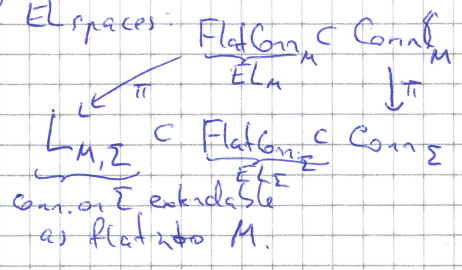 EL spaces:
FlatConn_M ⊂ Conn_M
EL_M
π π
L_{M,Σ} ⊂ FlatConn_Σ ⊂ Conn_Σ
EL_Σ
conn. on Σ extendable
as flat into M.